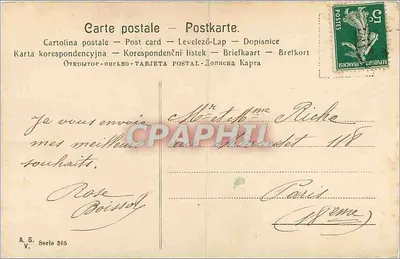 Carte postale – Postkarte.
Cartolina postale – Post card – Levelező-Lap – Dopisnice
Karta korespondencyjna – Korespondenční lístek – Briefkaart – Brefkort
Открытое письмо – TARJETA POSTAL – Дописна Карта
5c
POSTES
REPUBLIQUE FRANÇAISE
Je vous envoie
mes meilleurs
souhaits.
Rose
Boisso
Mr et Mme Riche
118
Paris
(18eme)
CPAPHIL
A. S.
V. Serie 365